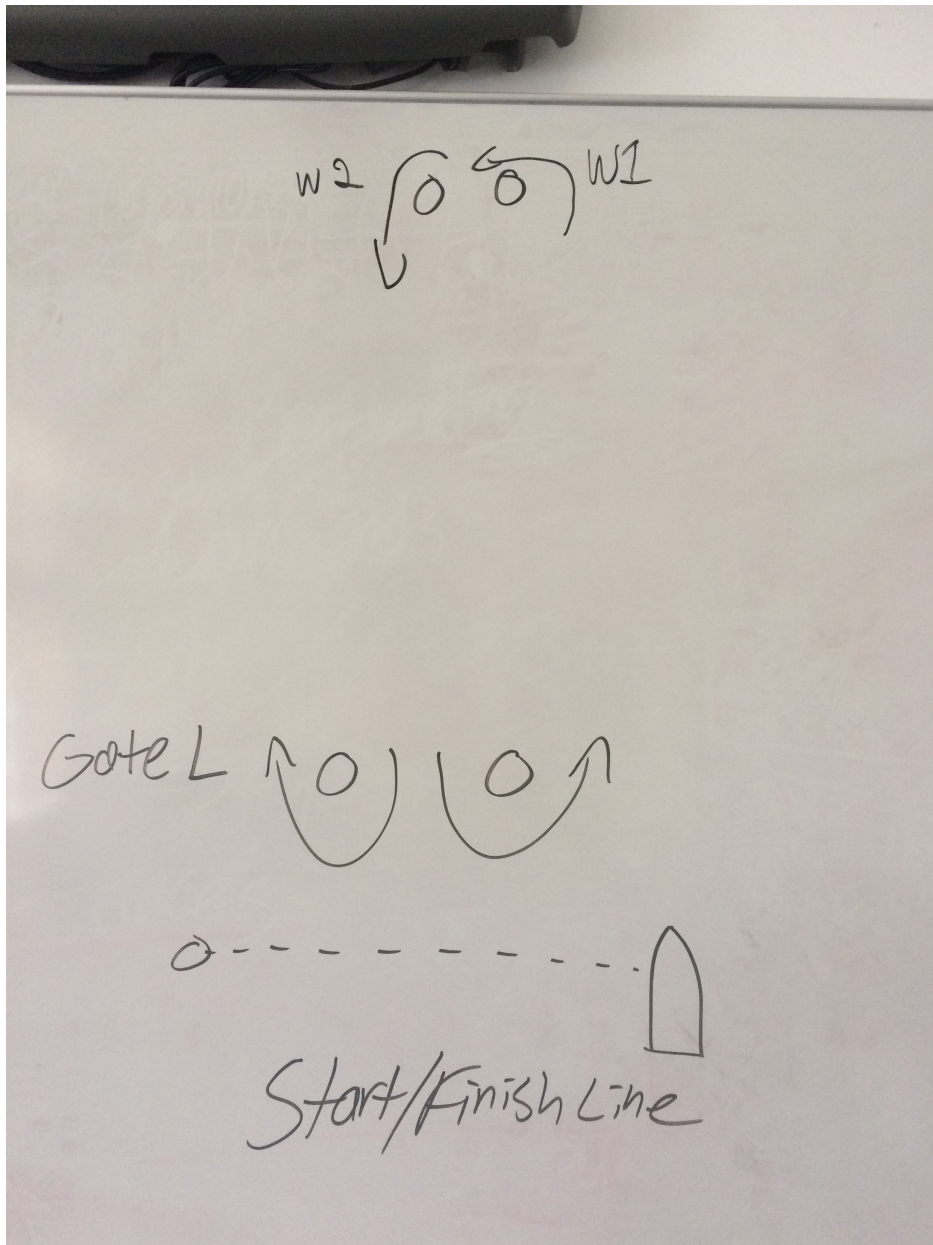 W2 W1
Gate L
Start/Finish Line